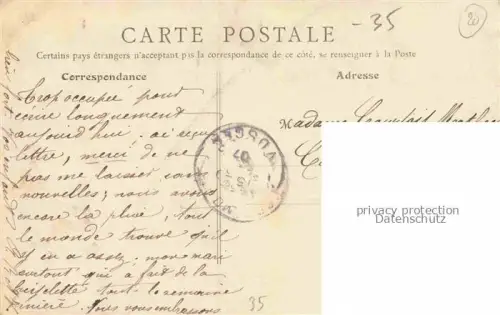 CARTE POSTALE
- 35
20
Certains pays étrangers n'acceptant pas la correspondance de ce côté, se renseigner à la Poste
Correspondance
Adresse
Trop occupée pour
écrire longuement
aujourd'hui. ai reçu
lettre, merci de ne
pas me laisser sans
nouvelles; nous avons
encore la pluie, tout
le monde trouve qu'il
y en a assez. mon mari
surtout qui a fait de la
bicyclette toute la semaine
Nous vous embrassons
bien fort
Madame
VOSGES
07
privacy protection
Datenschutz
35